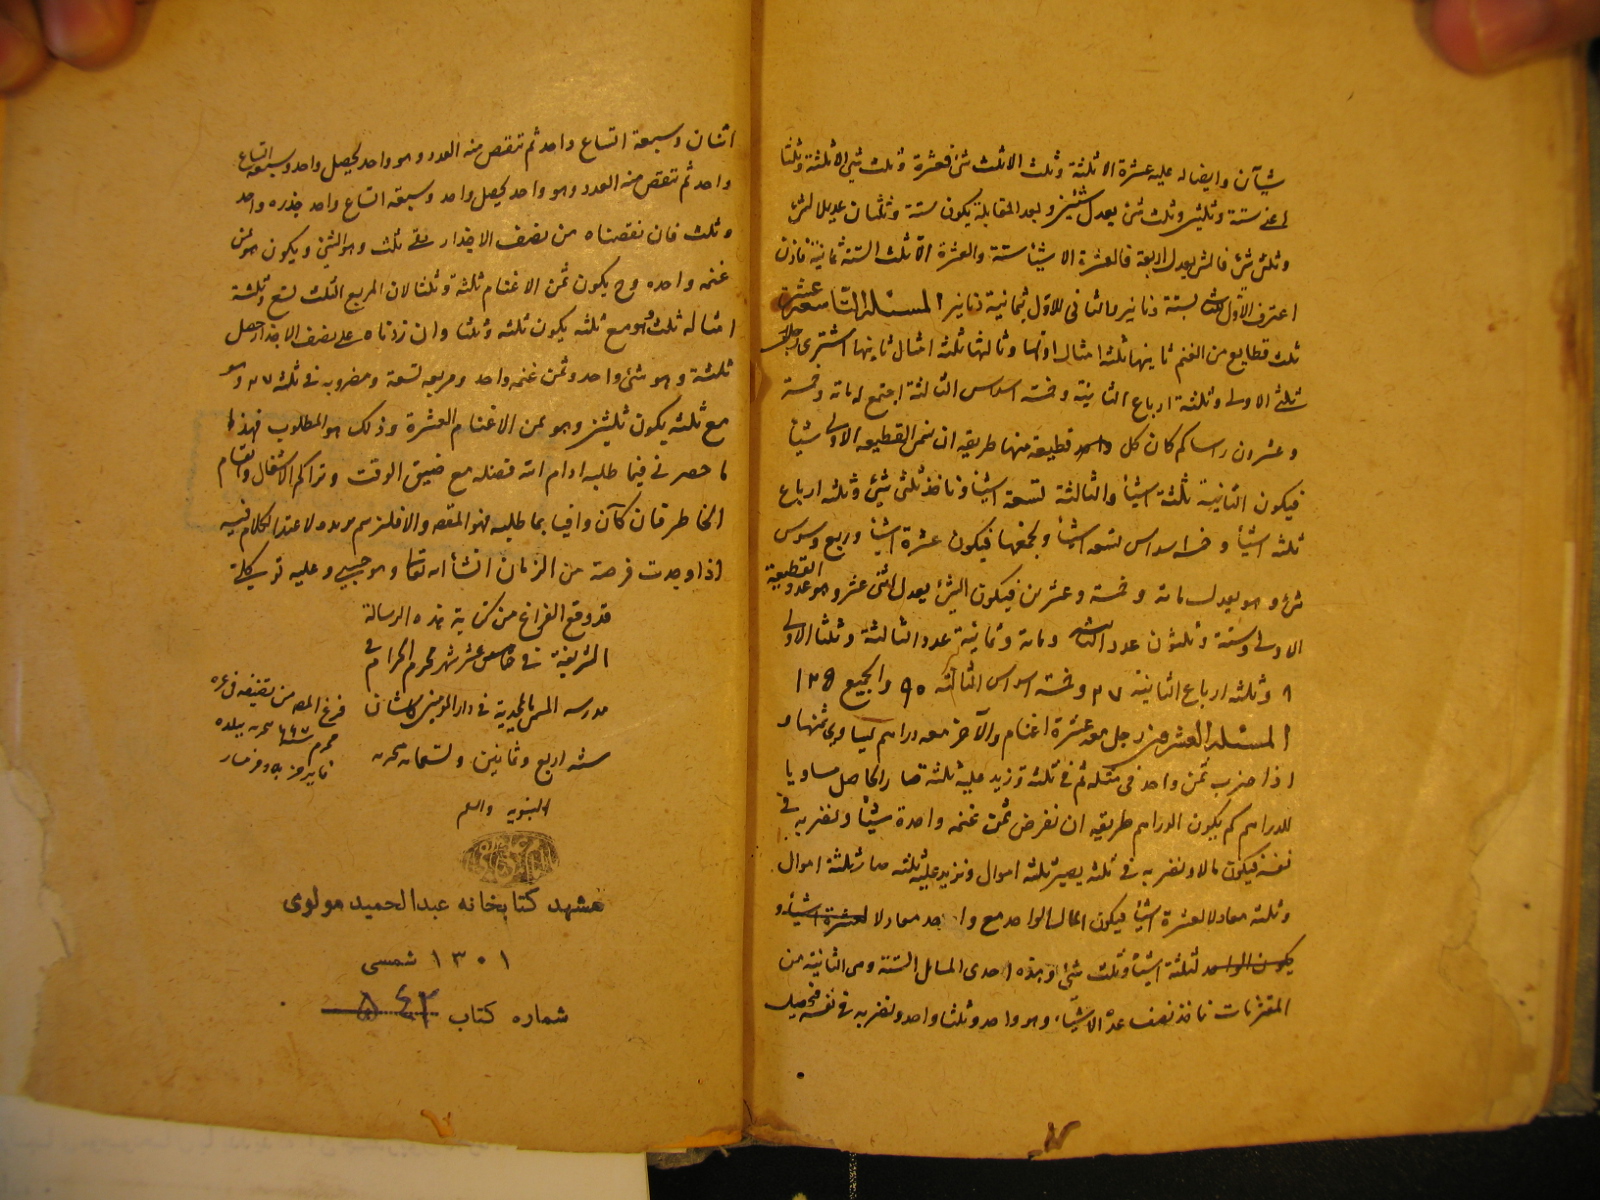 شيآن وايضا له عليه عشرة الا ثلثة وثلث الا ثلث شئ فعشرة وثلث شئ الا ثلثة وثلثا
اعنى ستة وثلثين وثلث شئ يعدل شيئين وبعد المقابلة يكون ستة وثلثان عديلا لشئ
وثلثى شئ فالشئ يعدل اربعة فالعشرة الا شيئا ستة والعشرة الا ثلث الستة ثمانية فاذن
اعترف الاول للثانى بستة دنانير والثانى للاول بثمانية دنانير المسئلة التاسعة عشرة
ثلث قطايع من الغنم ثانيها ثلثة امثال اولها وثالثها ثلثة امثال ثانيها اشترى رجل
ثلثى الاولى وثلثة ارباع الثانية وخمسة اسداس الثالثة اجتمع له مائة وخمسة
وعشرون راسا كم كان كل واحد قطيعة منها طريقه ان نفرض القطيعة الاولى شيئا
فيكون الثانية ثلثة اشيأ والثالثة تسعة اشيأ وناخذ ثلثى شئ وثلثة ارباع
ثلثة اشيأ وخمسة اسداس تسعة اشيأ ونجمعها فيكون عشرة اشيأ وربع وسدس
شئ وهو يعدل مائة وخمسة وعشرين فيكون الشئ يعدل اثنى عشر وهو عدد القطيعة
الاولى وستة وثلثون عدد الثانية ومائة وثمانية عدد الثالثة وثلثا الاولى
٨ وثلثة ارباع الثانية ٢٧ وخمسة اسداس الثالثة ٩٠ والجميع ١٢٥
المسئلة العشرون رجل معه عشرة اغنام والآخر معه دراهم يساوى ثمنها و
اذا ضرب ثمن واحد فى مثله ثم فى ثلثة وزيد عليه ثلثة صار الحاصل مساويا
للدراهم كم يكون الدراهم طريقه ان نفرض ثمن غنمه واحدة شيئا ونضربه فى
نفسه فيكون مالا ونضربه فى ثلثة يصير ثلثة اموال ونزيد عليه ثلثة صار ثلثة اموال
وثلثة معادلا لعشرة اشيأ فيكون المال الواحد مع واحد معادلا لعشرة اشيأ و
يكون الواحد لثلثة اشيأ وثلث شئ وهذه احدى المسائل الستة وهى الثانية من
المقترنات ناخذ نصف عدة الاشيآء وهو واحد وثلثا واحد ونضربه فى نفسه فيحصل
اثنان وسبعة اتساع واحد ثم ننقص منه العدد وهو واحد يحصل واحد وسبعة اتساع
واحد ثم ننقص منه العدد وهو واحد يحصل واحد وسبعة اتساع واحد جذره واحد
وثلث فان نقصناه من نصف الاجذار بقى ثلث وهو الشئ ويكون هو ثمن
غنمه واحده وح يكون ثمن الاغنام ثلثة وثلثا لان المربع الثلث تسع وثلثة
امثاله ثلث وهو مع ثلثه يكون ثلثه وثلثا وان زدناه على نصف الاجذار حصل
ثلثة وهو شئ واحد وثمن غنمه واحد ومربعه تسعة ومضروبه فى ثلثه ٢٧ وهو
مع ثلثه يكون ثلثين وهو ثمن الاغنام العشرة وذلك هو المطلوب فهذا
ما حضرنى فيما طلبه ادام الله فضله مع ضيق الوقت وتراكم الاشغال وانقسام
الخاطر فان كان وافيا بما طلبه فهو المقصود والا فلنرسم لاعتد الكلام فيه
اذا وجدت فرصة من الزمان انشأ الله تعالى وهو حسبى وعليه توكلى
قد وقع الفراغ من كتابة هذه الرسالة
الشريفة فى خامس عشر شهر محرم الحرام فى
مدرسه فى دار المومنين كاشان
سنه اربع وثمانين وتسعمائه هجريه
النبويه والسلم
فرغ المصـ من تصنيفه فى غره
محرم سنه ببلده
مشهد كتابخانه عبدالحميد مولوى
١٣٠١ شمسى
شماره كتاب ٥٤٢